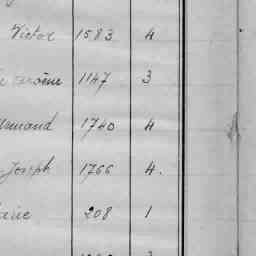 Victor 1583 4
Jérôme 1147 3
Armand 1740 4
Joseph 1766 4.
208 1
3